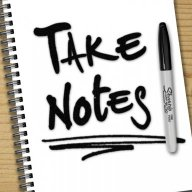 TAKE
NOTES
Sharpie